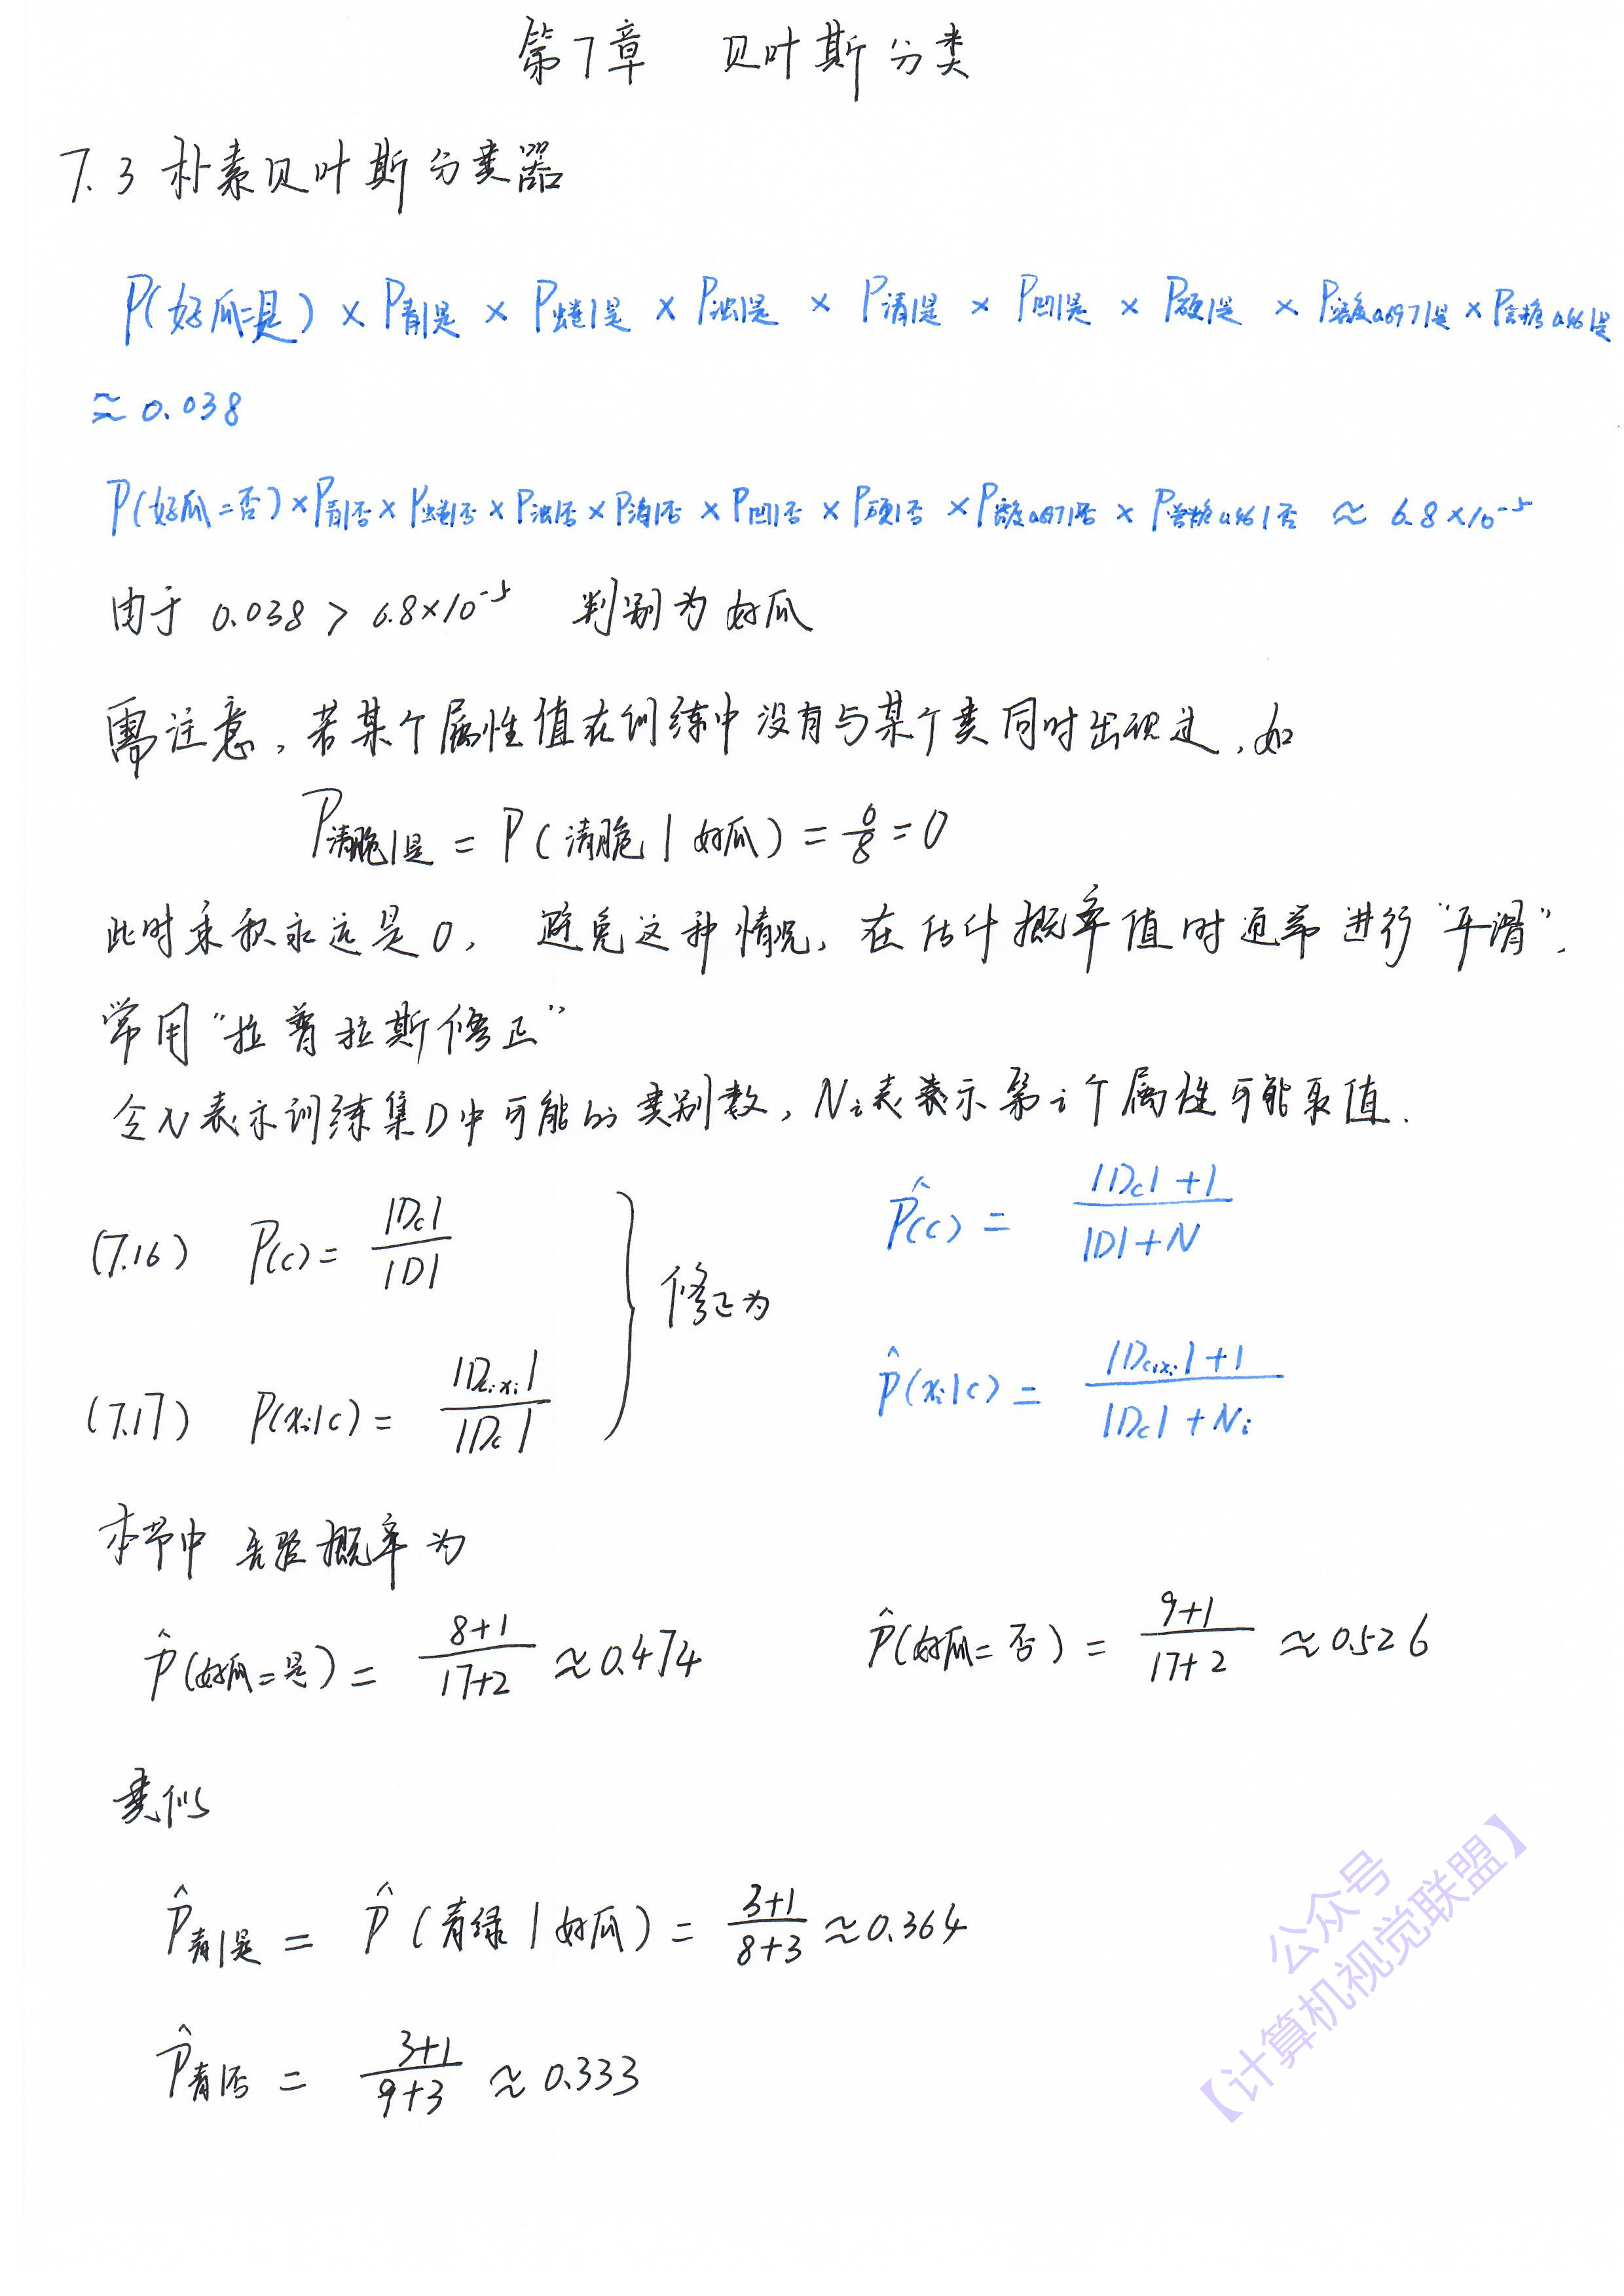 第7章 贝叶斯分类
7.3 朴素贝叶斯分类器
P(好瓜=是) × P青|是 × P蜷|是 × P浊|是 × P清|是 × P凹|是 × P硬|是 × P密度0.697|是 × P含糖0.46|是
≈ 0.038
P(好瓜=否) × P青|否 × P蜷|否 × P浊|否 × P清|否 × P凹|否 × P硬|否 × P密度0.697|否 × P含糖0.46|否 ≈ 6.8×10⁻⁵
由于 0.038 > 6.8×10⁻⁵ 判别为好瓜
需注意,若某个属性值在训练中没有与某个类同时出现过,如
P清脆|是 = P(清脆|好瓜) = 0/8 = 0
此时乘积永远是0, 避免这种情况,在估计概率值时通常进行“平滑”,
常用“拉普拉斯修正”
令N表示训练集D中可能的类别数,Nᵢ表示第i个属性可能取值.
(7.16) P(c) = |Dc| / |D| 修正为 P̂(c) = (|Dc|+1) / (|D|+N)
(7.17) P(xᵢ|c) = |Dc,xᵢ| / |Dc| P̂(xᵢ|c) = (|Dc,xᵢ|+1) / (|Dc|+Nᵢ)
本节中 先验概率为
P̂(好瓜=是) = (8+1)/(17+2) ≈ 0.474 P̂(好瓜=否) = (9+1)/(17+2) ≈ 0.526
类似
P̂青|是 = P̂(青绿|好瓜) = (3+1)/(8+3) ≈ 0.364
P̂青|否 = (3+1)/(9+3) ≈ 0.333
公众号
【计算机视觉联盟】